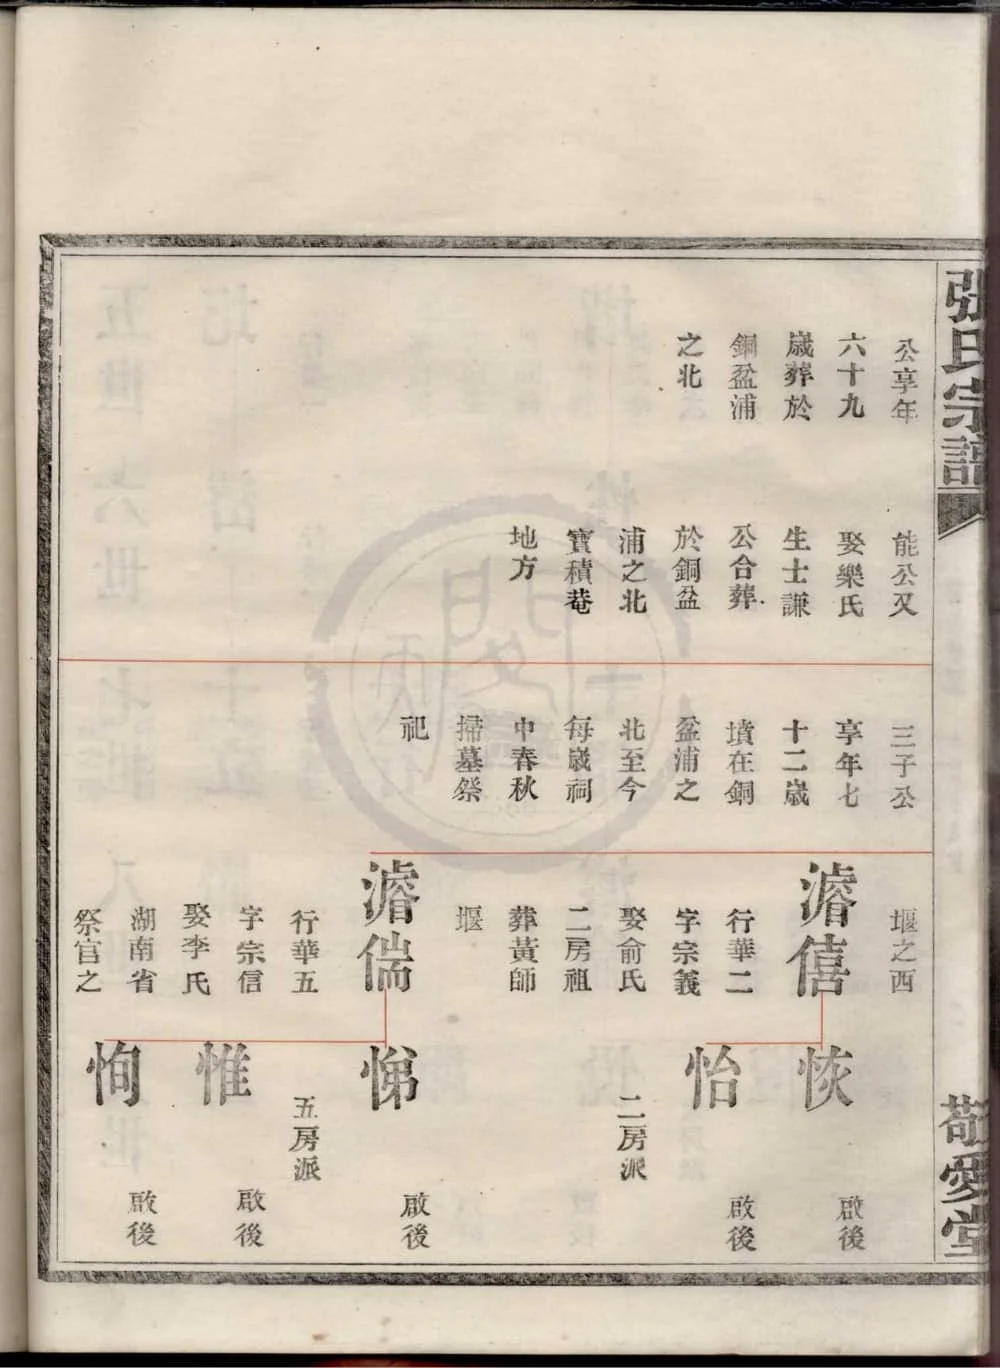 張氏宗譜
敬愛堂
公享年
六十九
歲葬於
銅盆浦
之北
能公又
娶樂氏
生士謙
公合葬
於銅盆
浦之北
寶積菴
地方
三子公
享年七
十二歲
墳在銅
盆浦之
北至今
每歲祠
中春秋
掃墓祭
祀
堰之西
濬僖
行華二
字宗義
娶俞氏
二房祖
葬黃師
堰
濬儒
行華五
字宗信
娶李氏
湖南省
祭官之
恢
啟後
怡
啟後
二房派
悌
啟後
五房派
惟
啟後
恂
啟後